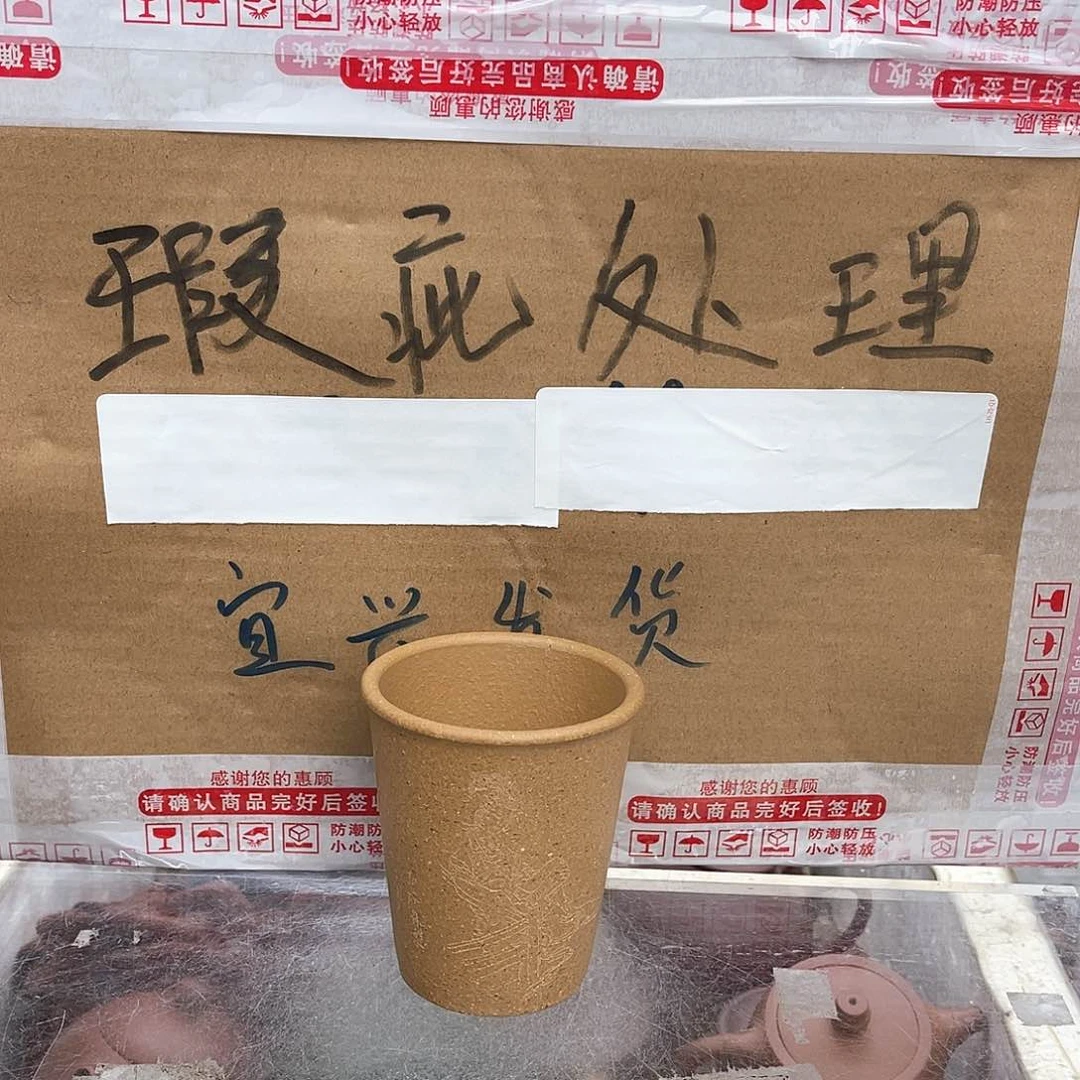 防潮防压
小心轻放
防潮防压
小心轻放
请确
签收!
请确认商品完好后签收!
签收!
好后签收!
感谢您的惠顾
瑕疵处理
宜兴发货
感谢您的惠顾
请确认商品完好后签收
防潮防
小心轻
感谢您的惠顾
请确认商品完好后签收!
防潮防压
小心轻放
防潮防压
小心轻放